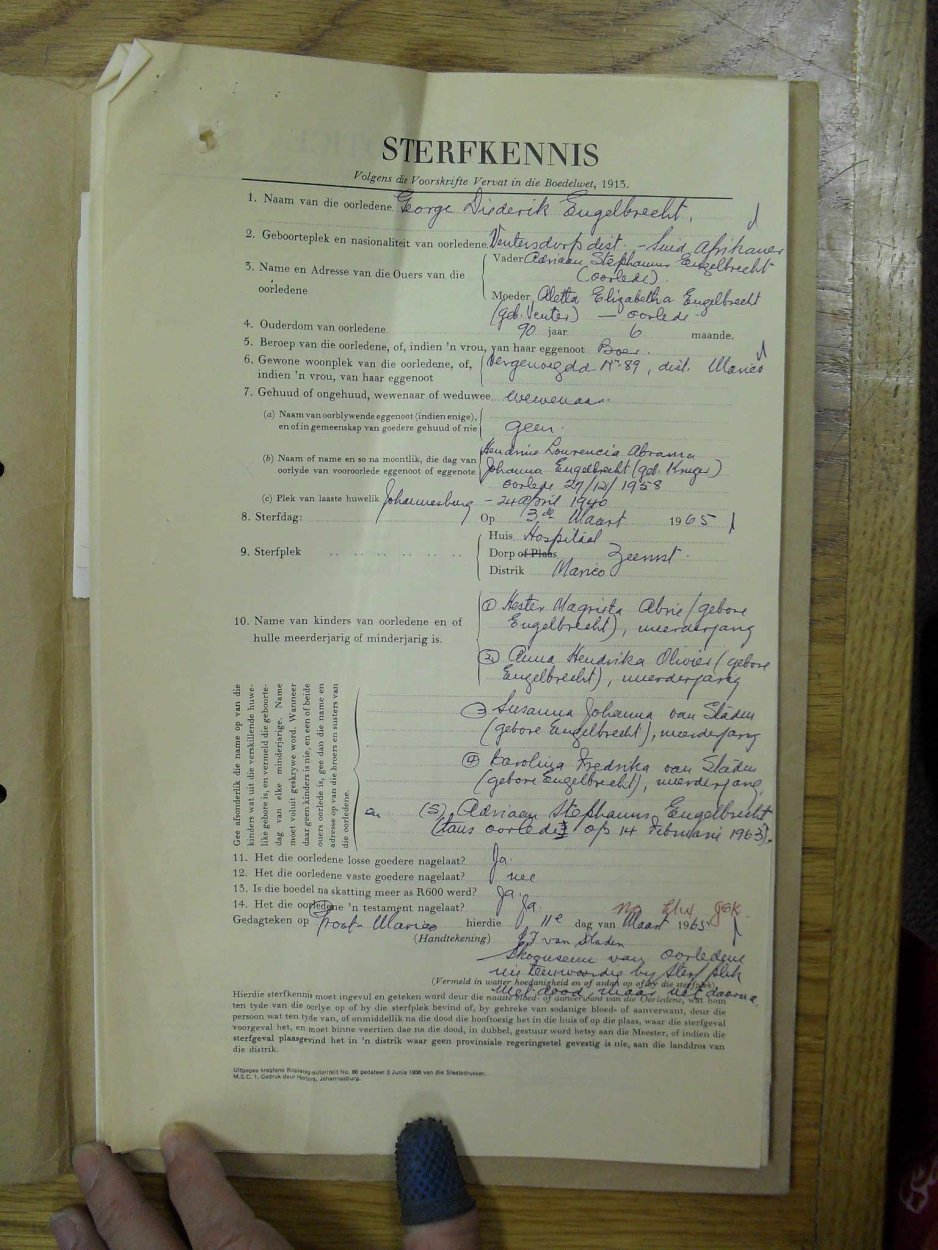 STERFKENNIS
Volgens die Voorskrifte Vervat in die Boedelwet, 1913.
1. Naam van die oorledene George Diederik Engelbrecht.
2. Geboorteplek en nasionaliteit van oorledene. Ventersdorp dist. - Suid Afrikaner
3. Name en Adresse van die Ouers van die oorledene
Vader Adriaan Stephanus Engelbrecht
(oorlede)
Moeder Aletta Elizabetha Engelbrecht
(geb. Venter) — oorlede
4. Ouderdom van oorledene 90 jaar 6 maande.
5. Beroep van die oorledene, of, indien 'n vrou, van haar eggenoot Boer.
6. Gewone woonplek van die oorledene, of, indien 'n vrou, van haar eggenoot
Vergenoegd No. 89, dist. Marico
7. Gehuud of ongehuud, wewenaar of weduwee. Wewenaar.
(a) Naam van oorblywende eggenoot (indien enige), en of in gemeenskap van goedere gehuud of nie
geen.
(b) Naam of name en so na moontlik, die dag van oorlyde van vooroorlede eggenoot of eggenote
Hendrina Lourencia Abrama
Johanna Engelbrecht (geb. Kruger)
oorlede 27/12/1958
(c) Plek van laaste huwelik Johannesburg - 24 April 1940
8. Sterfdag: Op 3de Maart 1965
9. Sterfplek .. .. .. .. .. ..
Huis Hospitaal
Dorp of Plaas Zeerust.
Distrik Marico
10. Name van kinders van oorledene en of hulle meerderjarig of minderjarig is.
(1) Hester Magrieta Abrie (gebore
Engelbrecht), meerderjarig
(2) Anna Hendrika Olivier (gebore
Engelbrecht), meerderjarig
(3) Susanna Johanna van Staden
(gebore Engelbrecht), meerderjarig
(4) Karolina Fredrika van Staden
(gebore Engelbrecht), meerderjarig,
en (5) Adriaan Stephanus Engelbrecht
(taus oorlede) op 14 Februarie 1963).
Gee afsonderlik die name op van die
kinders wat uit die verskillende huwe-
like gebore is, en vermeld die geboorte-
dag van elke minderjarige. Name
moet voluit geskrywe word. Wanneer
daar geen kinders is nie, en een of beide
ouers oorlede is, gee dan die name en
adresse op van die broers en susters van
die oorledene.
11. Het die oorledene losse goedere nagelaat? Ja.
12. Het die oorledene vaste goedere nagelaat? nee
13. Is die boedel na skatting meer as R600 werd? Ja.
14. Het die oorledene 'n testament nagelaat? Ja.
Gedagteken op Groot-Marico hierdie 11e dag van Maart 1965
(Handtekening) van Staden
Skoonseun van oorledene
nie teenwoordig by sterfplek
(Vermeld in watter hoedanigheid en of ardan op of by die sterfplek)
met dood, maar net daarna
Hierdie sterfkennis moet ingevul en geteken word deur die naaste bloed- of aanverwant van die Oorledene, wat hom
ten tyde van die oorlye op of by die sterfplek bevind of, by gebreke van sodanige bloed- of aanverwant, deur die
persoon wat ten tyde van, of onmiddellik na die dood die hooftoesig het in die huis of op die plaas, waar die sterfgeval
voorgeval het, en moet binne veertien dae na die dood, in dubbel, gestuur word hetsy aan die Meester, of indien die
sterfgeval plaasgevind het in 'n distrik waar geen provinsiale regeringsetel gevestig is nie, aan die landdros van
die distrik.
Uitgegee kragtens Kopiereg-autoriteit No. 80 gedateer 3 Junie 1936 van die Staatsdrukker.
M.S.C. 1. Gedruk deur Hortors, Johannesburg.